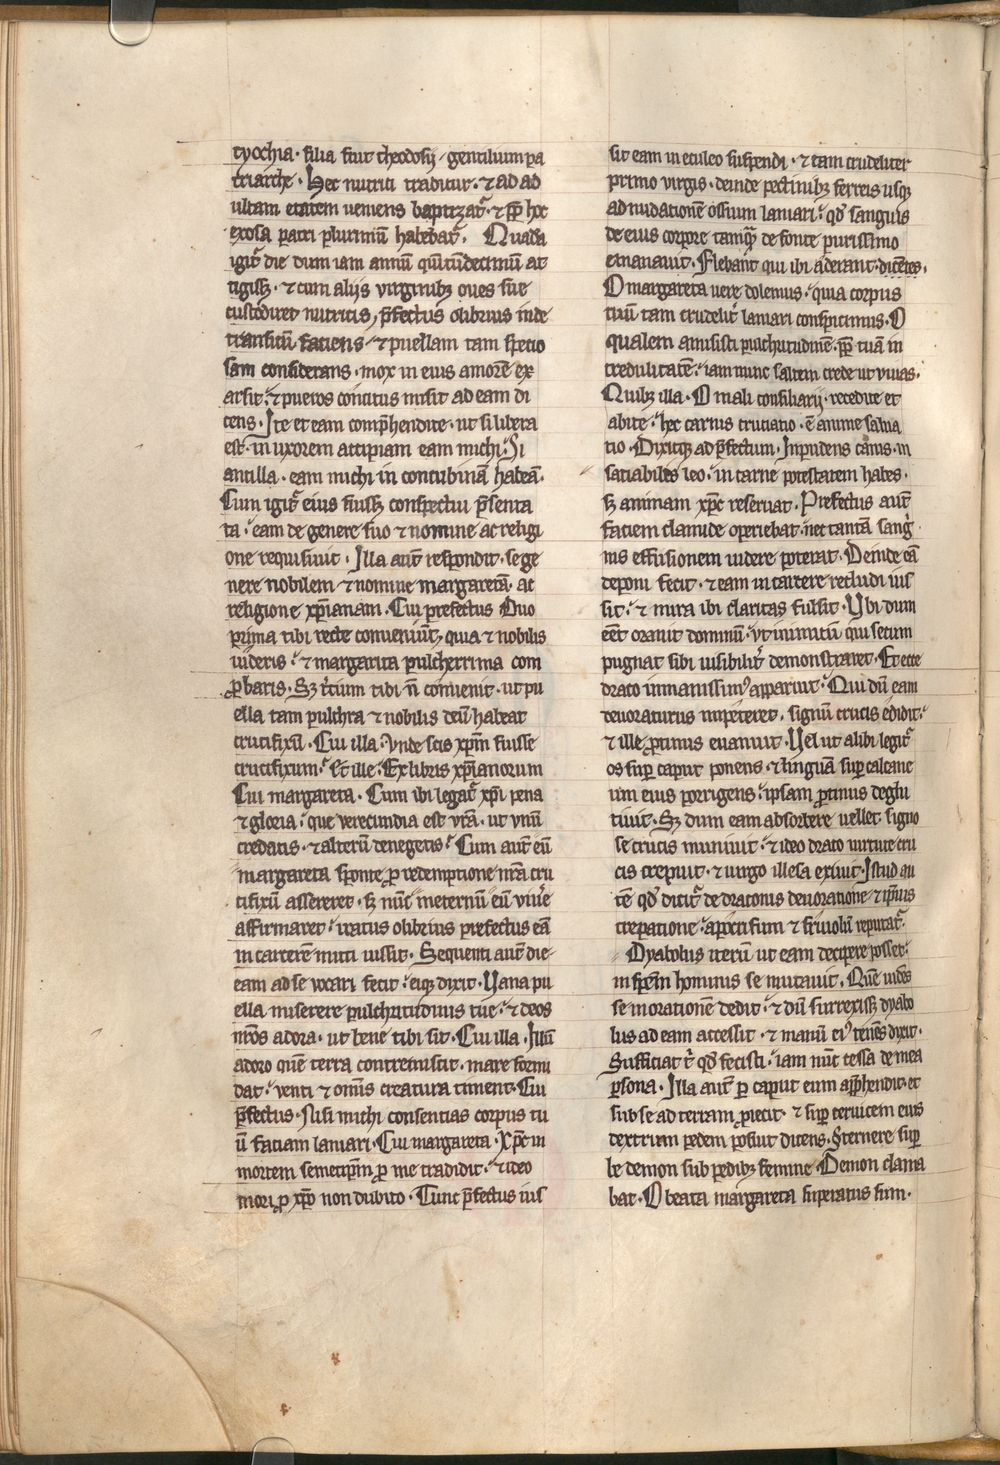 tyochia. filia fuit theodosij. gentilium pa
triarche. Hec nutrici traditur. ⁊ ad ad
ultam etatem ueniens baptizat᷑. ⁊ ꝑp̄ hoc
exosa patri plurimū habebat᷑. Quadā
igit᷑ die dum iam annū quītūdecimū at
tigissꝫ. ⁊ cum aliis virginibꝫ oues sue
custodiret nutricis, p̄fectus olibrius inde
transitū faciens. ⁊ puellam tam specio
sam considerans. mox in eius amorē ex
arsit. ⁊ pueros concitus misit ad eam di
cens. Ite et eam comp̄hendite. ut si libera
est. in uxorem accipiam eam michi. Si
ancilla. eam michi in concubinā habeā.
Cum igit᷑ eius fuissꝫ conspectui p̄senta
ta. eam de genere suo ⁊ nomine ac religi
one requisiuit. Illa aut̄ respondit. se ge
nere nobilem ⁊ nomine margaretā. ac
religione xp̄ianam. Cui prefectus Duo
prima tibi recte conueniūt, quia ⁊ nobilis
uideris. ⁊ margarita pulcherrima com
ꝓbaris. Sꝫ t̄cium tibi n̄ conuenit. ut pu
ella tam pulchra ⁊ nobilis deū habeat
crucifixū. Cui illa. Vnde scis xp̄m fuisse
crucifixum. Et ille. Ex libris xp̄ianorum
Cui margareta. Cum ibi legat᷑ xp̄i pena
⁊ gloria. que verecundia est vr̄a. ut vnū
credatis. ⁊ alterū denegetis. Cum aut̄ eū
margareta sponte ꝓ redemptione nr̄a cru
cifixū assereret. sꝫ nūc ineternū eū viuꝰe
affirmaret. iratus olibrius prefectus eā
in carcerē mitti iussit. Sequenti aut̄ die
eam ad se vocari fecit. eiqꝫ dixit. Vana pu
ella miserere pulchritudinis tue. ⁊ deos
nr̄os adora. ut bene tibi sit. Cui illa. Illū
adoro quē terra contremiscit. mare formi
dat. venti ⁊ omīs creatura timent. Cui
p̄fectus. Nisi michi consentias corpus tu
ū faciam laniari. Cui margareta. Xp̄c in
mortem semetip̄m ꝓ me tradidit. ⁊ ideo
mori ꝓ xp̄o non dubito. Tunc p̄fectus ius
sit eam in eculeo suspendi. ⁊ eam crudeliter
primo virgis. deinde pectinibꝫ ferreis usqꝫ
ad nudationē ossium laniari. qd̓ sanguis
de eius corpore tamqꝫ de fonte purissimo
emanauit. Flebant qui ibi aderant. dicētes.
O margareta uere dolemus. quia corpus
tuū tam crudelit᷑ laniari conspicimus. O
qualem amisisti pulchritudinē. ꝓp̄ tuā in
credulitatē. iam nunc saltem crede ut viuas.
Quibꝫ illa. O mali consiliarij. recedite et
abite. hec carnis cruciatio. ē anime salua
tio. Dixitqꝫ ad p̄fectum. Inpudens canis. in
satiabiles leo. in carne potestatem habes.
sꝫ animam xp̄c reseruat. Prefectus aut̄
faciem clamide operiebat. nec tantā sang̓
nis effusionem uidere poterat. Deinde eā
deponi fecit. ⁊ eam in carcere recludi ius
sit. ⁊ mira ibi claritas fulsit. Vbi dum
eēt orauit dominū. vt inimicū qui secum
pugnat sibi uisibilit᷑ demonstraret. Et ecce
draco inmanissimꝰ apparuit. Qui dū eam
deuoraturus impeteret. signū crucis edidit.
⁊ ille ꝓtinus euanuit. Vel ut alibi legit᷑
os suꝑ caput ponens. ⁊ linguā suꝑ calcane
um eius porrigens. ipsam ꝓtinus deglu
tiuit. Sꝫ dum eam absorbere uellet. signo
se crucis muniuit. ⁊ ideo draco uirtute cru
cis crepuit. ⁊ uirgo illesa exiuit. Istud au
tē qd̓ dicit᷑ de draconis deuoratione ⁊ ip̄ius
crepatione. apocrifum ⁊ friuolū reputat᷑.
Dyabolus iterū ut eam decipere posset.
in sp̄em hominis se mutauit. Quē uidēs
se in orationē dedit. ⁊ dū surrexissꝫ dyabo
lus ad eam accessit. ⁊ manū eiꝰ tenēs dixit.
Sufficiat t̄ qd̓ fecisti. iam nūc cessa de mea
ꝑsona. Illa aut̄ ꝑ caput eum app̄hendit. et
sub se ad terram ꝓiecit. ⁊ suꝑ ceruicem eius
dextrum pedem posuit dicens. Sternere suꝑ
be demon sub pedibꝫ femine. Demon clama
bat. O beata margareta superatus sum.